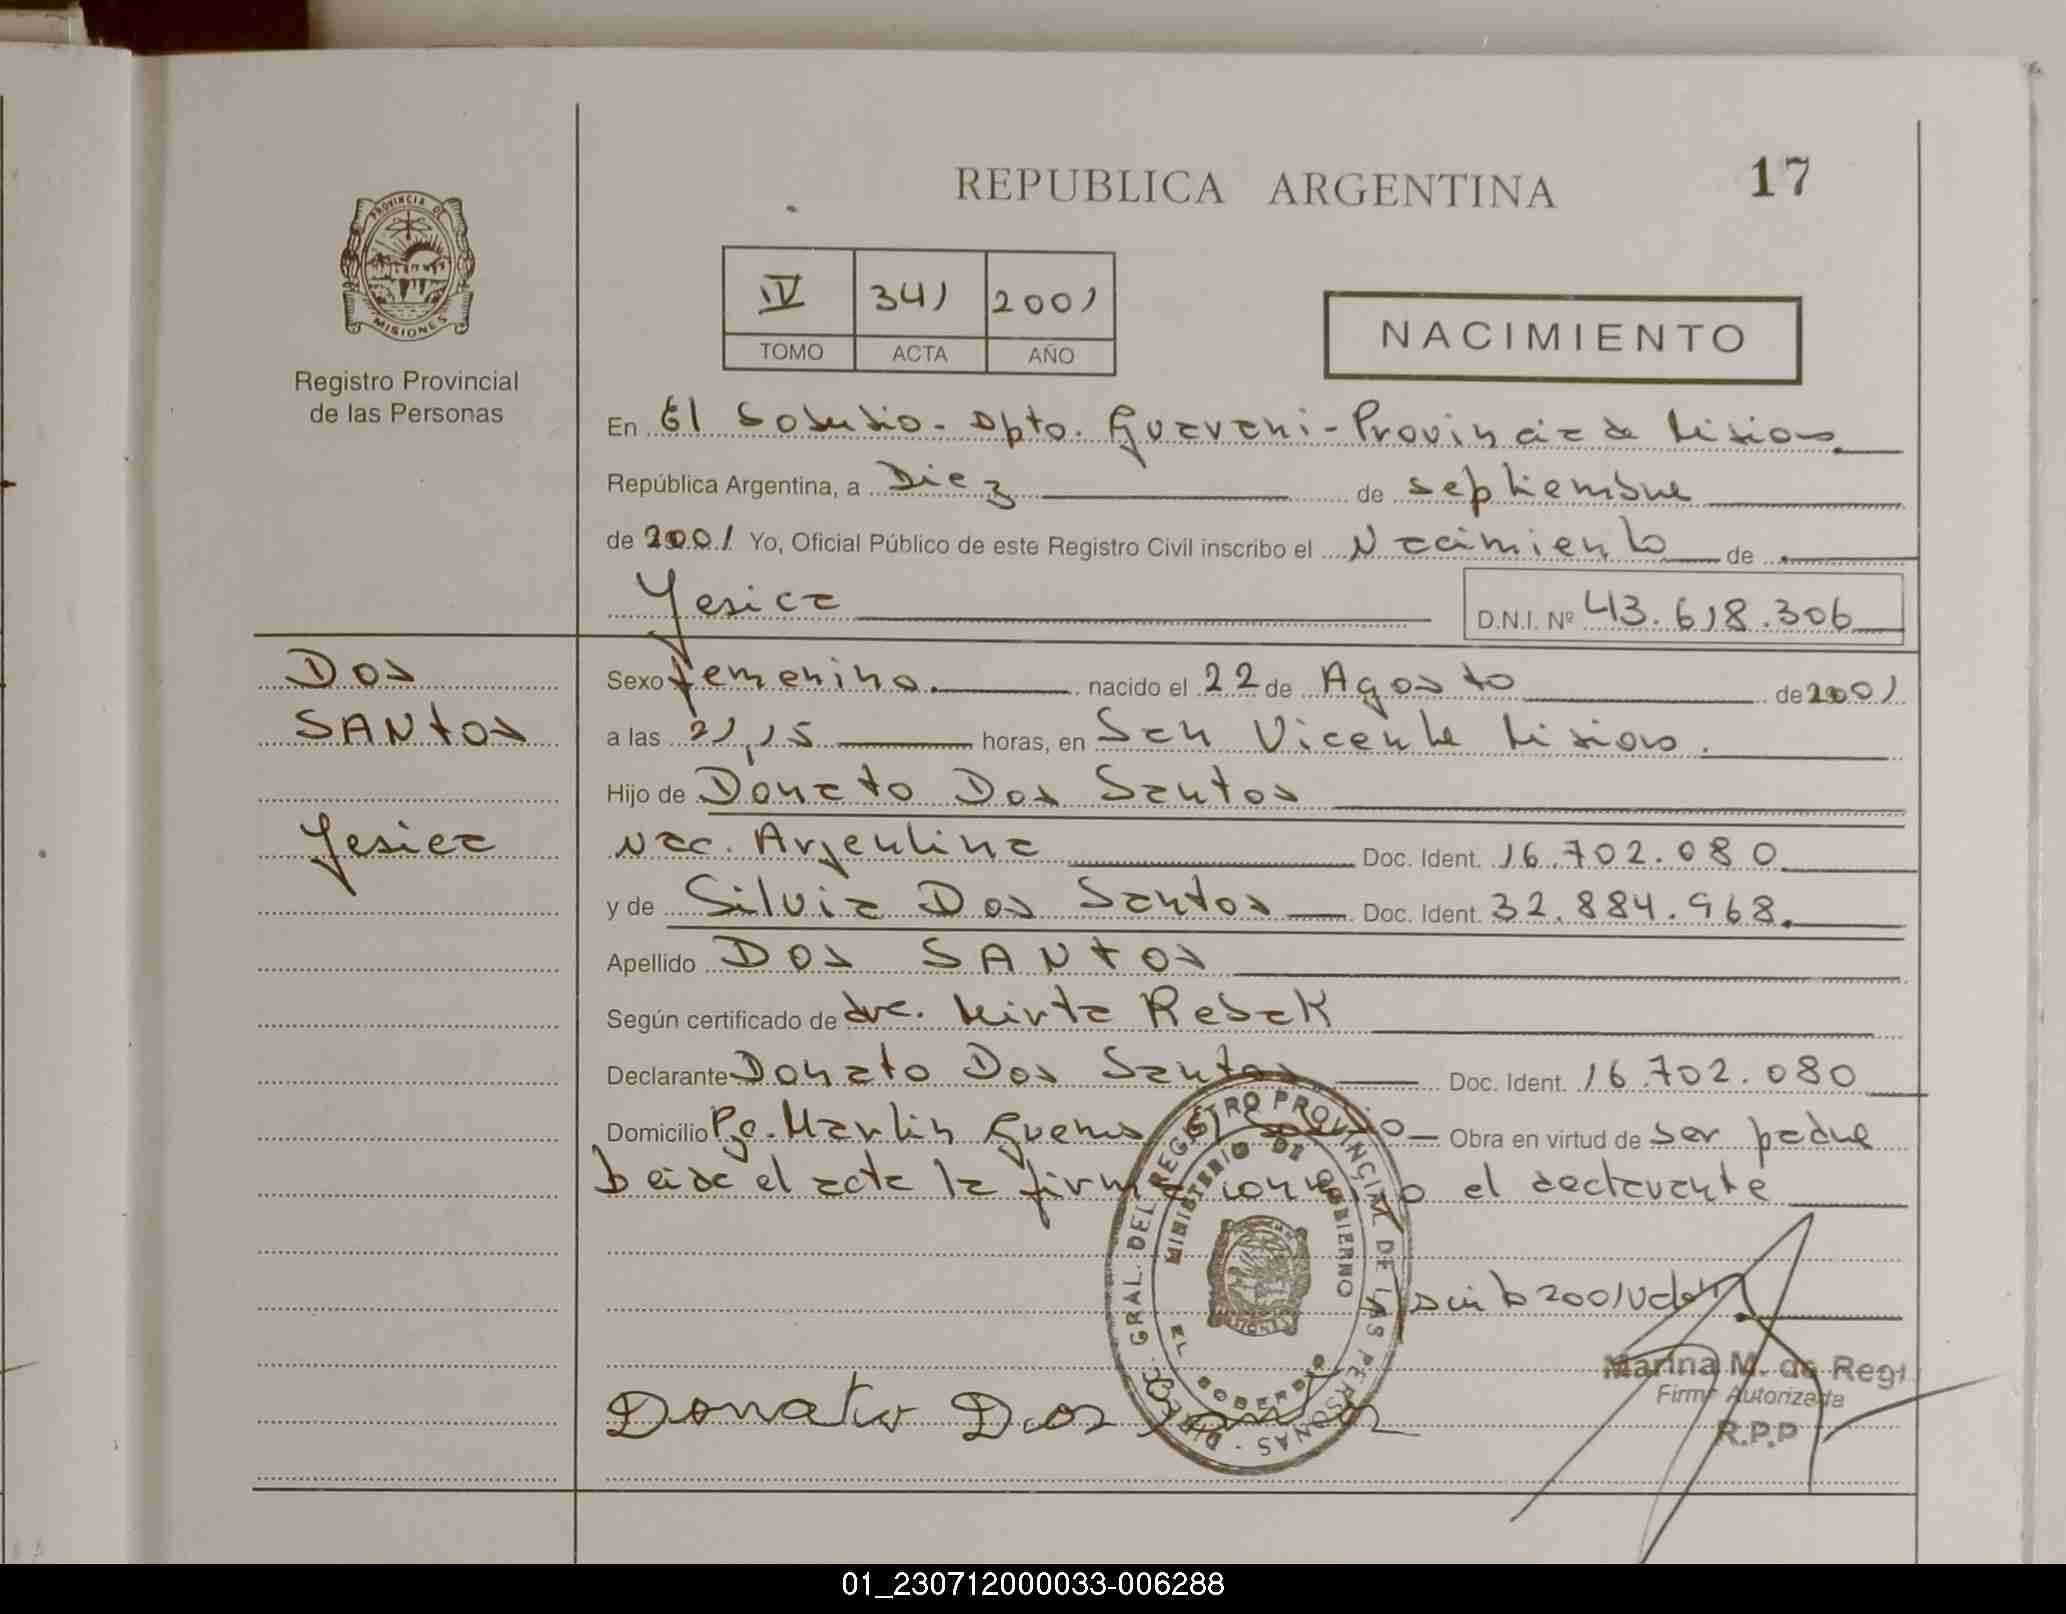 REPUBLICA ARGENTINA
17
PROVINCIA DE
MISIONES
Registro Provincial
de las Personas
IV 341 2001
TOMO ACTA AÑO
NACIMIENTO
En El Soberbio - Dpto. Guarani - Provincia de Misiones
República Argentina, a Diez de septiembre
de 2001 Yo, Oficial Público de este Registro Civil inscribo el Nacimiento de
Yesica D.N.I. Nº 43.618.306
Dos
SANtos
Yesica
Sexo femenino. nacido el 22 de Agosto de 2001
a las 21,15 horas, en San Vicente Misiones.
Hijo de Donato Dos Santos
Nac. Argentina Doc. Ident. 16.702.080
y de Silvia Dos Santos Doc. Ident. 32.884.968.
Apellido DOS SANtOS
Según certificado de dra. Mirta Rebak
Declarante Donato Dos Santos Doc. Ident. 16.702.080
Domicilio Pje. Martin Guemes El Soberbio Obra en virtud de ser padre
Leida el acta la firma conmigo el declarante
2001 Vale
GRAL. DEL REGISTRO PROVINCIAL DE LAS PERSONAS - DIREC.
MINISTERIO DE GOBIERNO
EL SOBERBIO
Donato Dos Santos
Marina M. de Regi
Firma Autorizada
R.P.P
01_230712000033-006288